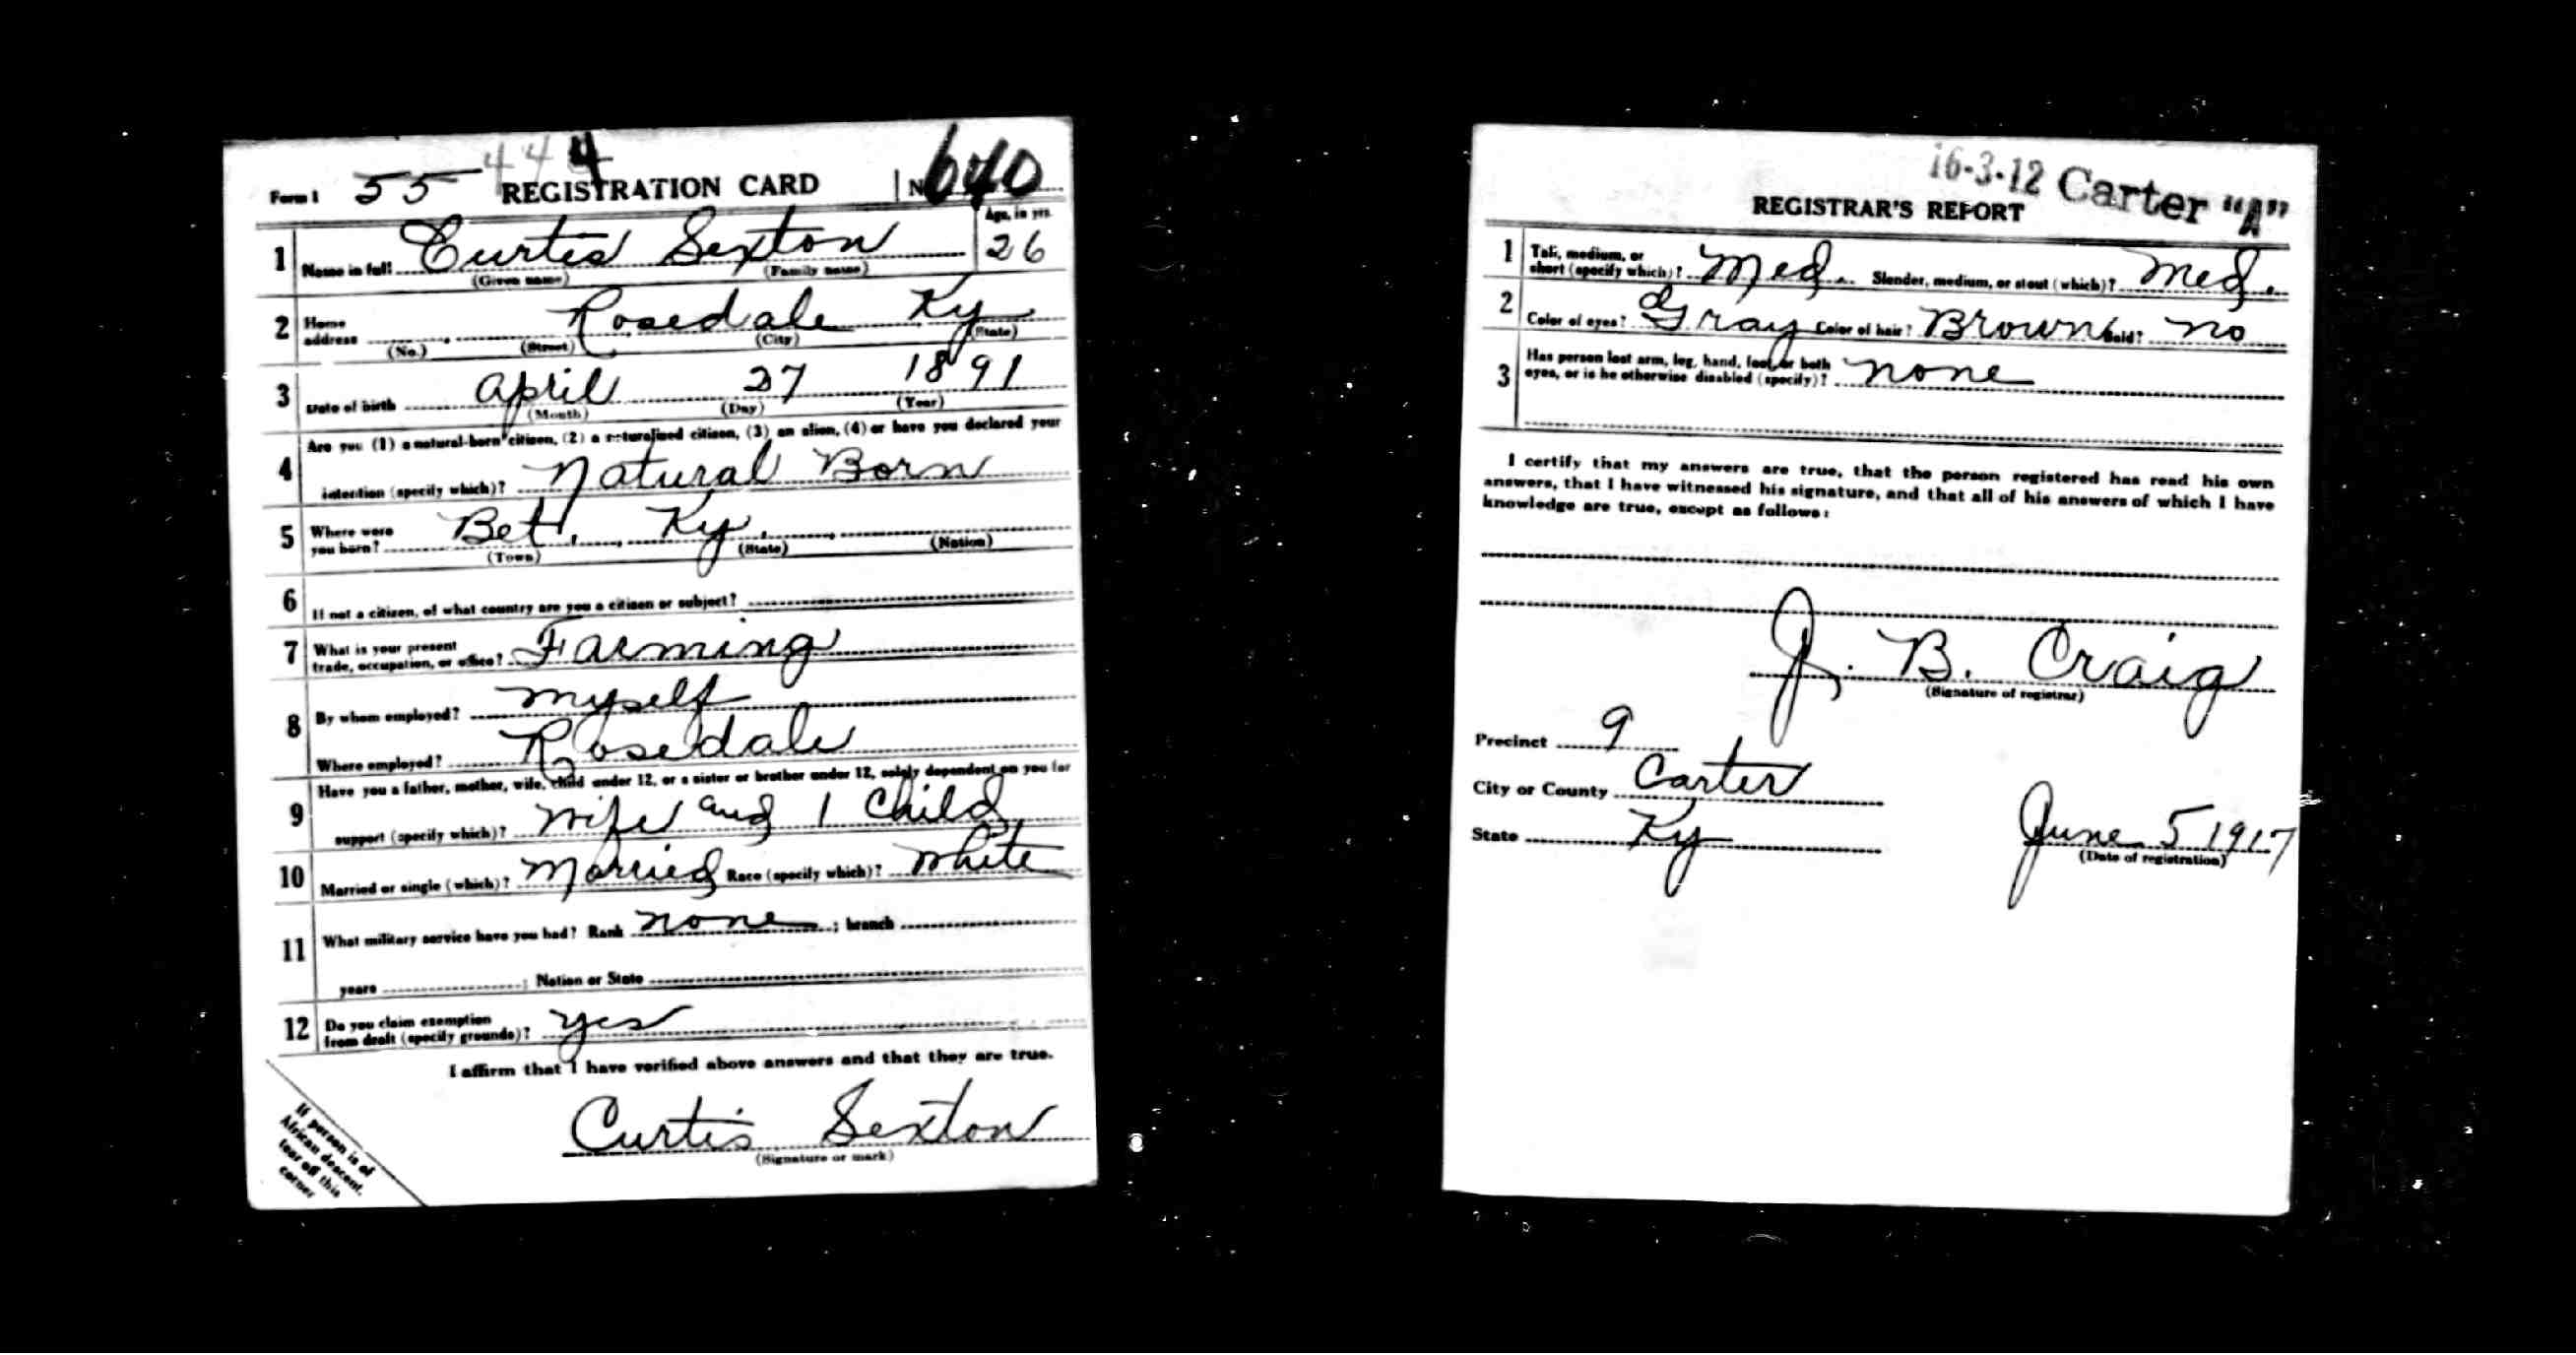 444
Form 1 55 REGISTRATION CARD No. 640
Age, in yrs.
1 Name in full Curtis Sexton 26
(Given name) (Family name)
2 Home address Rosedale Ky
(No.) (Street) (City) (State)
3 Date of birth April 27 1891
(Month) (Day) (Year)
4 Are you (1) a natural-born citizen, (2) a naturalized citizen, (3) an alien, (4) or have you declared your
intention (specify which)? Natural Born
5 Where were you born? Bet, Ky.
(Town) (State) (Nation)
6 If not a citizen, of what country are you a citizen or subject?
7 What is your present trade, occupation, or office? Farming
8 By whom employed? myself
Where employed? Rosedale
9 Have you a father, mother, wife, child under 12, or a sister or brother under 12, solely dependent on you for
support (specify which)? Wife and 1 Child
10 Married or single (which)? Married Race (specify which)? White
11 What military service have you had? Rank none ; branch
years ; Nation or State
12 Do you claim exemption from draft (specify grounds)? yes
I affirm that I have verified above answers and that they are true.
Curtis Sexton
(Signature or mark)
If person is of
African descent,
tear off this
corner
16-3-12 Carter "A"
REGISTRAR'S REPORT
1 Tall, medium, or short (specify which)? Med. Slender, medium, or stout (which)? Med.
2 Color of eyes? Gray Color of hair? Brown Bald? No
3 Has person lost arm, leg, hand, foot, or both
eyes, or is he otherwise disabled (specify)? none
I certify that my answers are true, that the person registered has read his own
answers, that I have witnessed his signature, and that all of his answers of which I have
knowledge are true, except as follows:
J. B. Craig
(Signature of registrar)
Precinct 9
City or County Carter
State Ky
June 5 1917
(Date of registration)